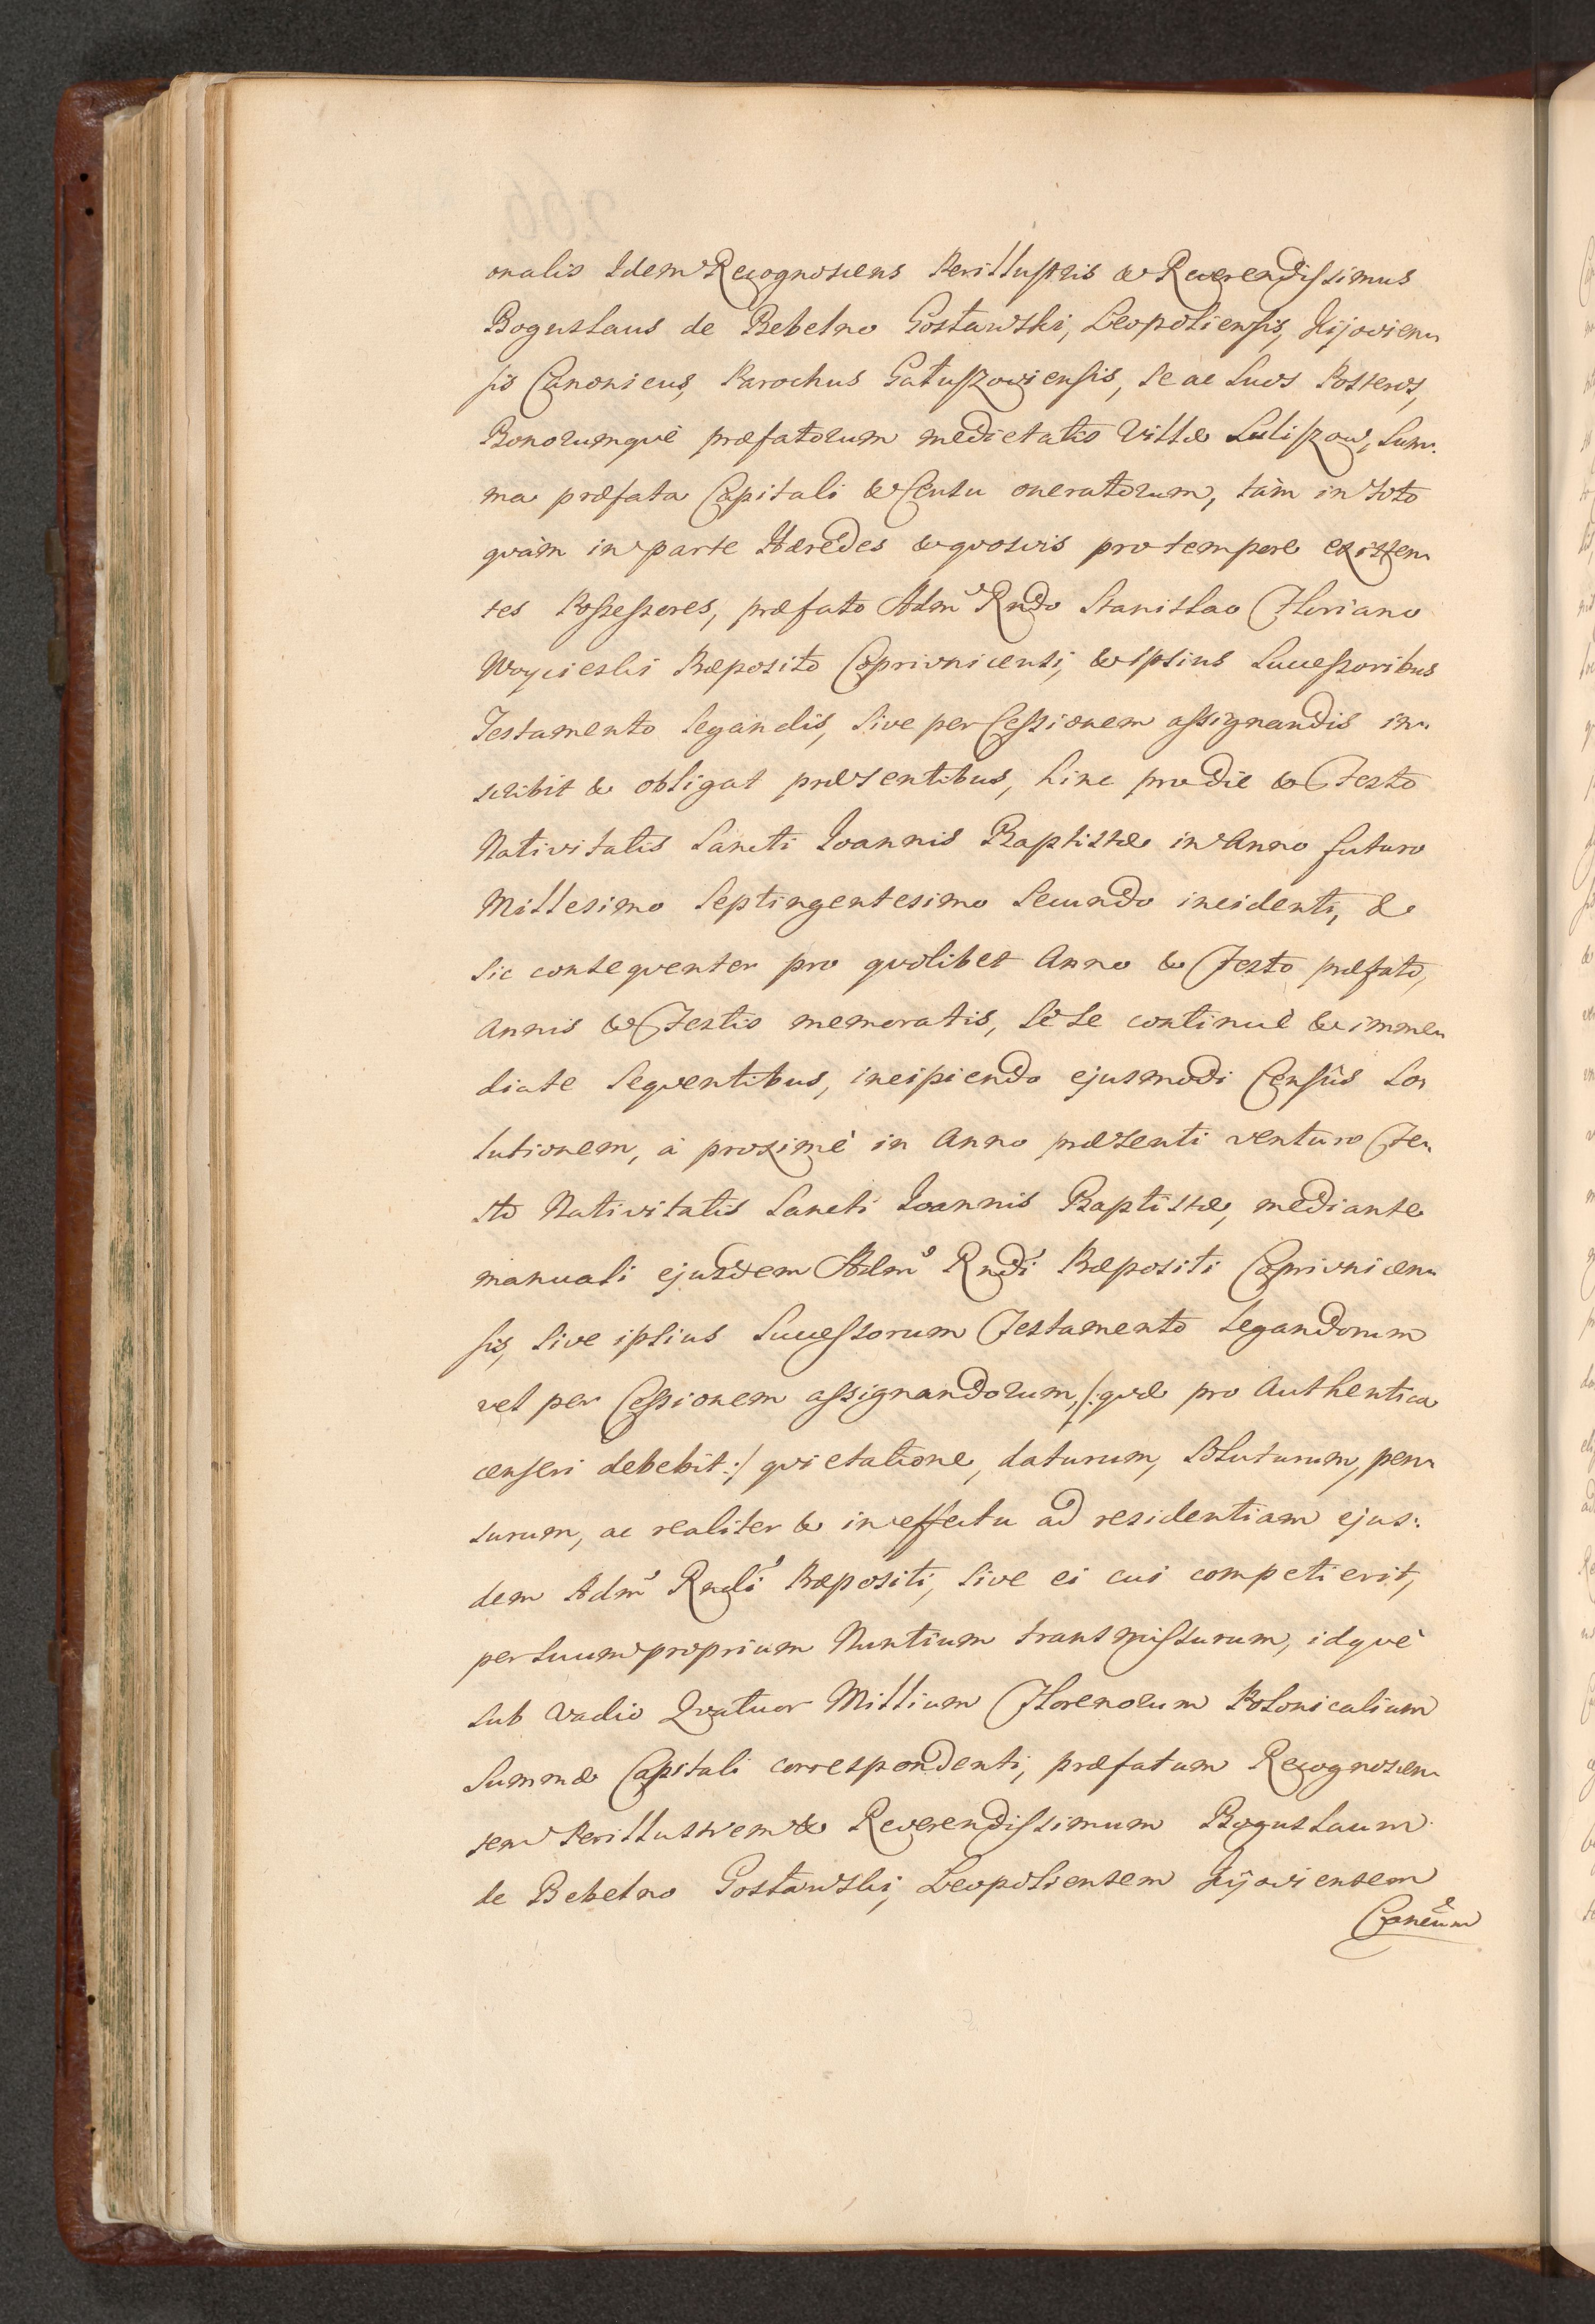 onalis Idem Recognoscens Perillustris & Reverendissimus
Boguslaus de Bebelno Gosławski, Leopoliensis, Kijovien-
sis Canonicus, Parochus Gałuszoviensis, se ac suos Posteros,
Bonorumqvè præfatorum medietatis Villæ Suliszow, Sum-
ma præfata Capitali & Censu oneratorum, tàm in toto
qvàm in parte Hæredes & qvosvis pro tempore existen-
tes Possessores, præfato Adm Rndo Stanislao Floriano
Woycieski Præposito Coprivnicensi, & ipsius Successoribus
Testamento legandis, sive per Cessionem assignandis in-
scribit & obligat præsentibus, hinc pro die & Festo
Nativitatis Sancti Ioannis Baptistæ in Anno futuro
Millesimo Septingentesimo Secundo incidenti, &
sic conseqventer pro qvolibet Anno & Festo præfato,
Annis & Festis memoratis, sese continuè & imme-
diate seqventibus, incipiendo ejusmodi Censûs so-
lutionem, à proximè in Anno præsenti venturo Fe-
sto Nativitatis Sancti Ioannis Baptistæ, mediante
manuali ejusdem Adm Rndi Præpositi Coprivnicen-
sis, sive ipsius Successorum Testamento legandorum
vel per Cessionem assignandorum, /:qvæ pro Authentica
censeri debebit:/ qvietatione, daturum, soluturum, pen-
surum, ac realiter & in effectu ad residentiam ejus-
dem Adm Rndi Præpositi, sive ei cui competierit,
per suum proprium Nuntium transmissurum, idqvè
sub vadio Qvatuor Millium Florenorum Polonicalium
Summæ Capitali correspondenti, præfatum Recognoscen-
tem Perillustrem & Reverendissimum Boguslaum
de Bebelno Gosławski, Leopoliensem Kijoviensem
Cancum